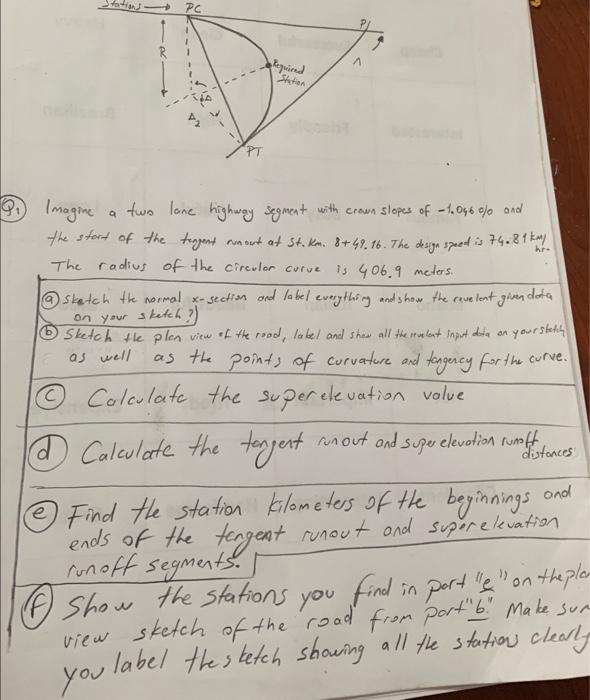 Stations → PC
PI
R
Required
Station
Δ
Δ
Δ2
PT
Q1) Imagine a two lane highway segment with crown slopes of -1.046 o/o and
the start of the tangent runout at St. Km. 8+49.16. The design speed is 74.81 km/hr.
The radius of the circular curve is 406.9 meters.
(a) Sketch the normal x-section and label everything and show the revelent given data
on your sketch?)
(b) Sketch the plan view of the road, label and show all the revelant input data on your sketch
as well as the points of curvature and tangency for the curve.
(c) Calculate the superelevation value
(d) Calculate the tangent runout and superelevation runoff
distances
(e) Find the station kilometers of the beginnings and
ends of the tangent runout and superelevation
runoff segments.
(f) Show the stations you find in part "e" on the plan
view sketch of the road from part "b". Make sur
you label the sketch showing all the stations clearly